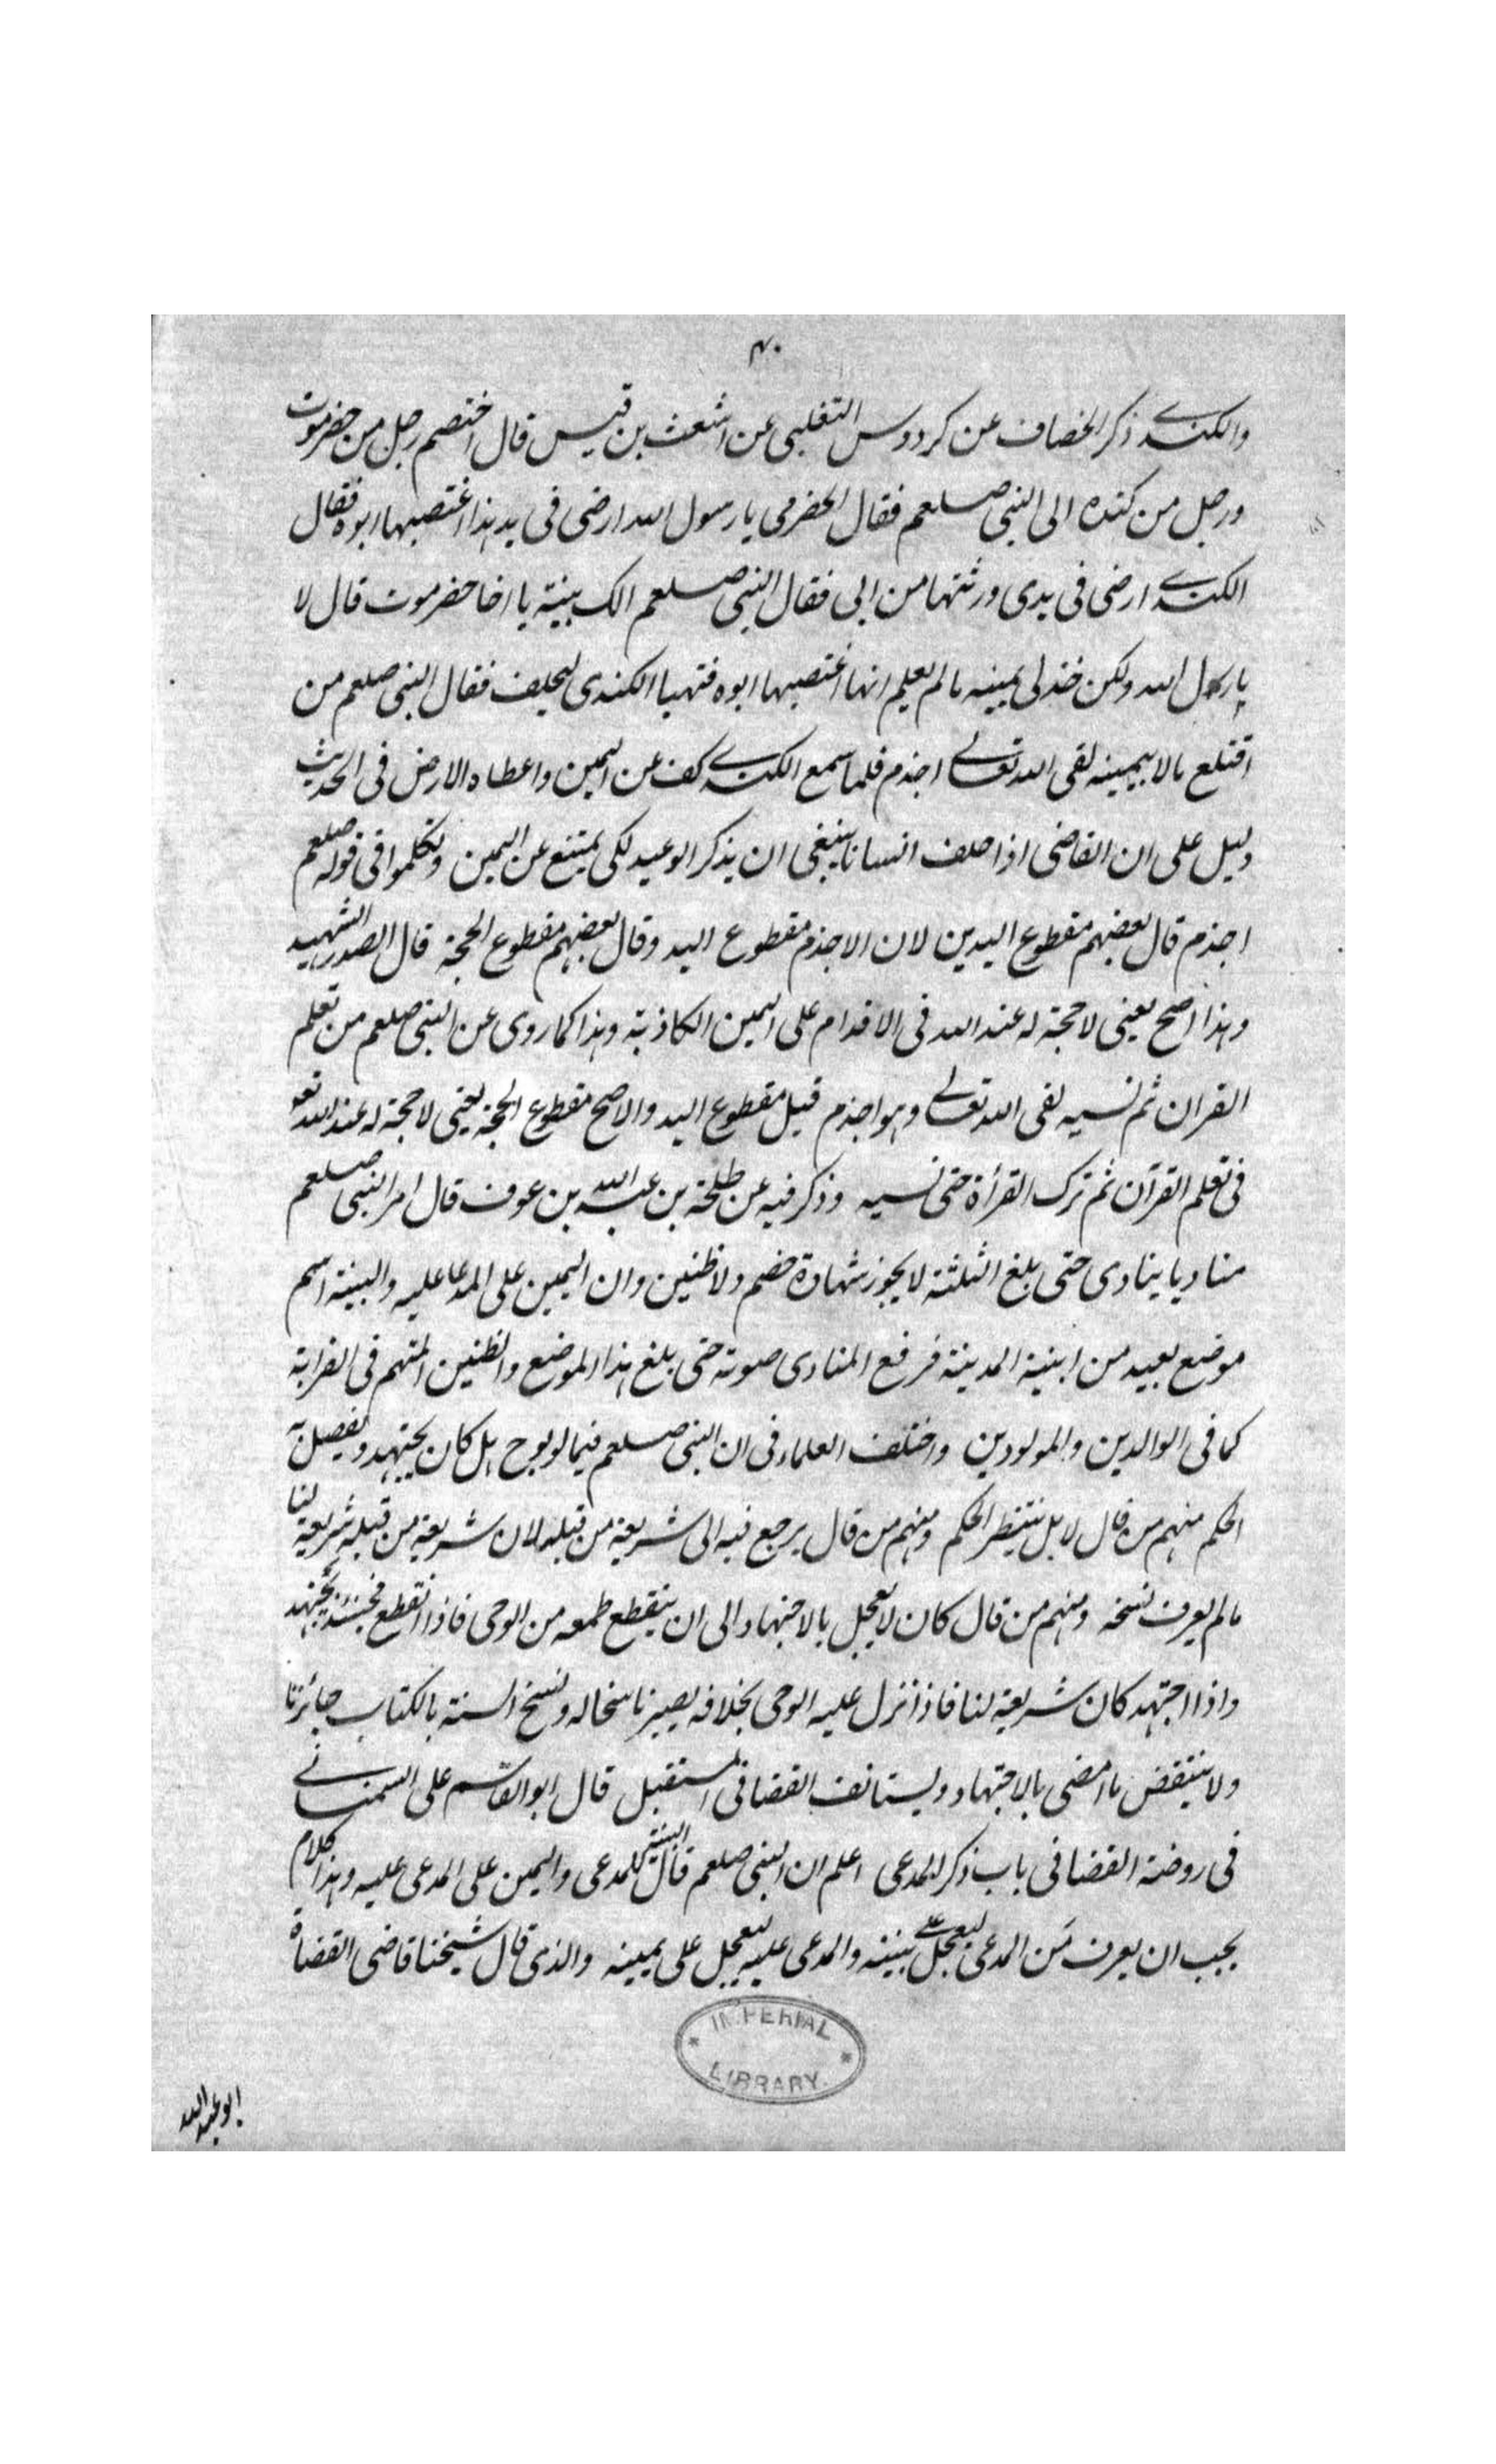 ۴۰
والكندے ذكر الخصاف عن كردوس التغلبى عن اشعث بن قيس قال اختصم رجل من حضرموت
ورجل من كنده الى النبى صلعم فقال الحضرمى يا رسول الله ارضى فى يد هذا اغتصبها ابوه فقال
الكندے ارضى فى يدى ورثتها من ابى فقال النبى صلعم الك بينة يا اخا حضرموت قال لا
يا رسول الله ولكن خذ لى يمينه ما لم يعلم انها اغتصبها ابوه فتهيا الكندى ليحلف فقال النبى صلعم من
اقتلع مالا بيمينه لقى الله تعالے اجذم فلما سمع الكندے كف عن اليمين واعطاه الارض فى الحديث
دليل على ان القاضى اذا حلف انسانا ينبغى ان يذكر الوعيد لكى يمتنع عن اليمين وتكلموا فى قوله صلعم
اجذم قال بعضهم مقطوع اليدين لان الاجذم مقطوع اليد وقال بعضهم مقطوع الحجة قال الصدر الشهيد
وهذا اصح يعنى لا حجة له عند الله فى الاقدام على اليمين الكاذبة وهذا كما روى عن النبى صلعم من تعلم
القران ثم نسيه لقى الله تعالے وهو اجذم قيل مقطوع اليد والاصح مقطوع الحجة يعنى لا حجة له عند الله تعو
فى تعلم القرآن ثم ترك القرأة حتى نسيه وذكر فيه عن طلحة بن عبد الله بن عوف قال امر النبى صلعم
مناديا ينادى حتى بلغ الثلثة لا يجوز شهادة خصم ولا ظنين وان اليمين على المدعا عليه والبينة اسم
موضع بعيد من ابنية المدينة فرفع المنادى صوته حتى بلغ هذا الموضع والظنين المتهم فى القرابة
كما فى الوالدين والمولودين واختلف العلماء فى ان النبى صلعم فيما لو يوح هل كان يجتهد ويفصل به
الحكم منهم من قال لا بل ينتظر الحكم ومنهم من قال يرجع فيه الى شريعة من قبله لان شريعة من قبله شريعة لنا
ما لم يعرف نسخه ومنهم من قال كان لا يعجل بالاجتهاد الى ان ينقطع طمعه من الوحى فاذا انقطع فحينئذ يجتهد
واذا اجتهد كان شريعة لنا فاذا نزل عليه الوحى بخلافه يصير ناسخا له ونسخ السنة بالكتاب جائزنا
ولا ينتقض ما امضى بالاجتهاد ويستانف القضا فى المستقبل قال ابو القاسم على السمنانے
فى روضة القضا فى باب ذكر المدعى اعلم ان النبى صلعم قال البينة للمدعى واليمين على المدعى عليه وهذا كلام
يجب ان يعرف مَن المدعى ليعجل على بينته والمدعى عليه ليعجل على يمينه والذى قال شيخنا قاضى القضاة
IMPERIAL LIBRARY
ابو عبد الله